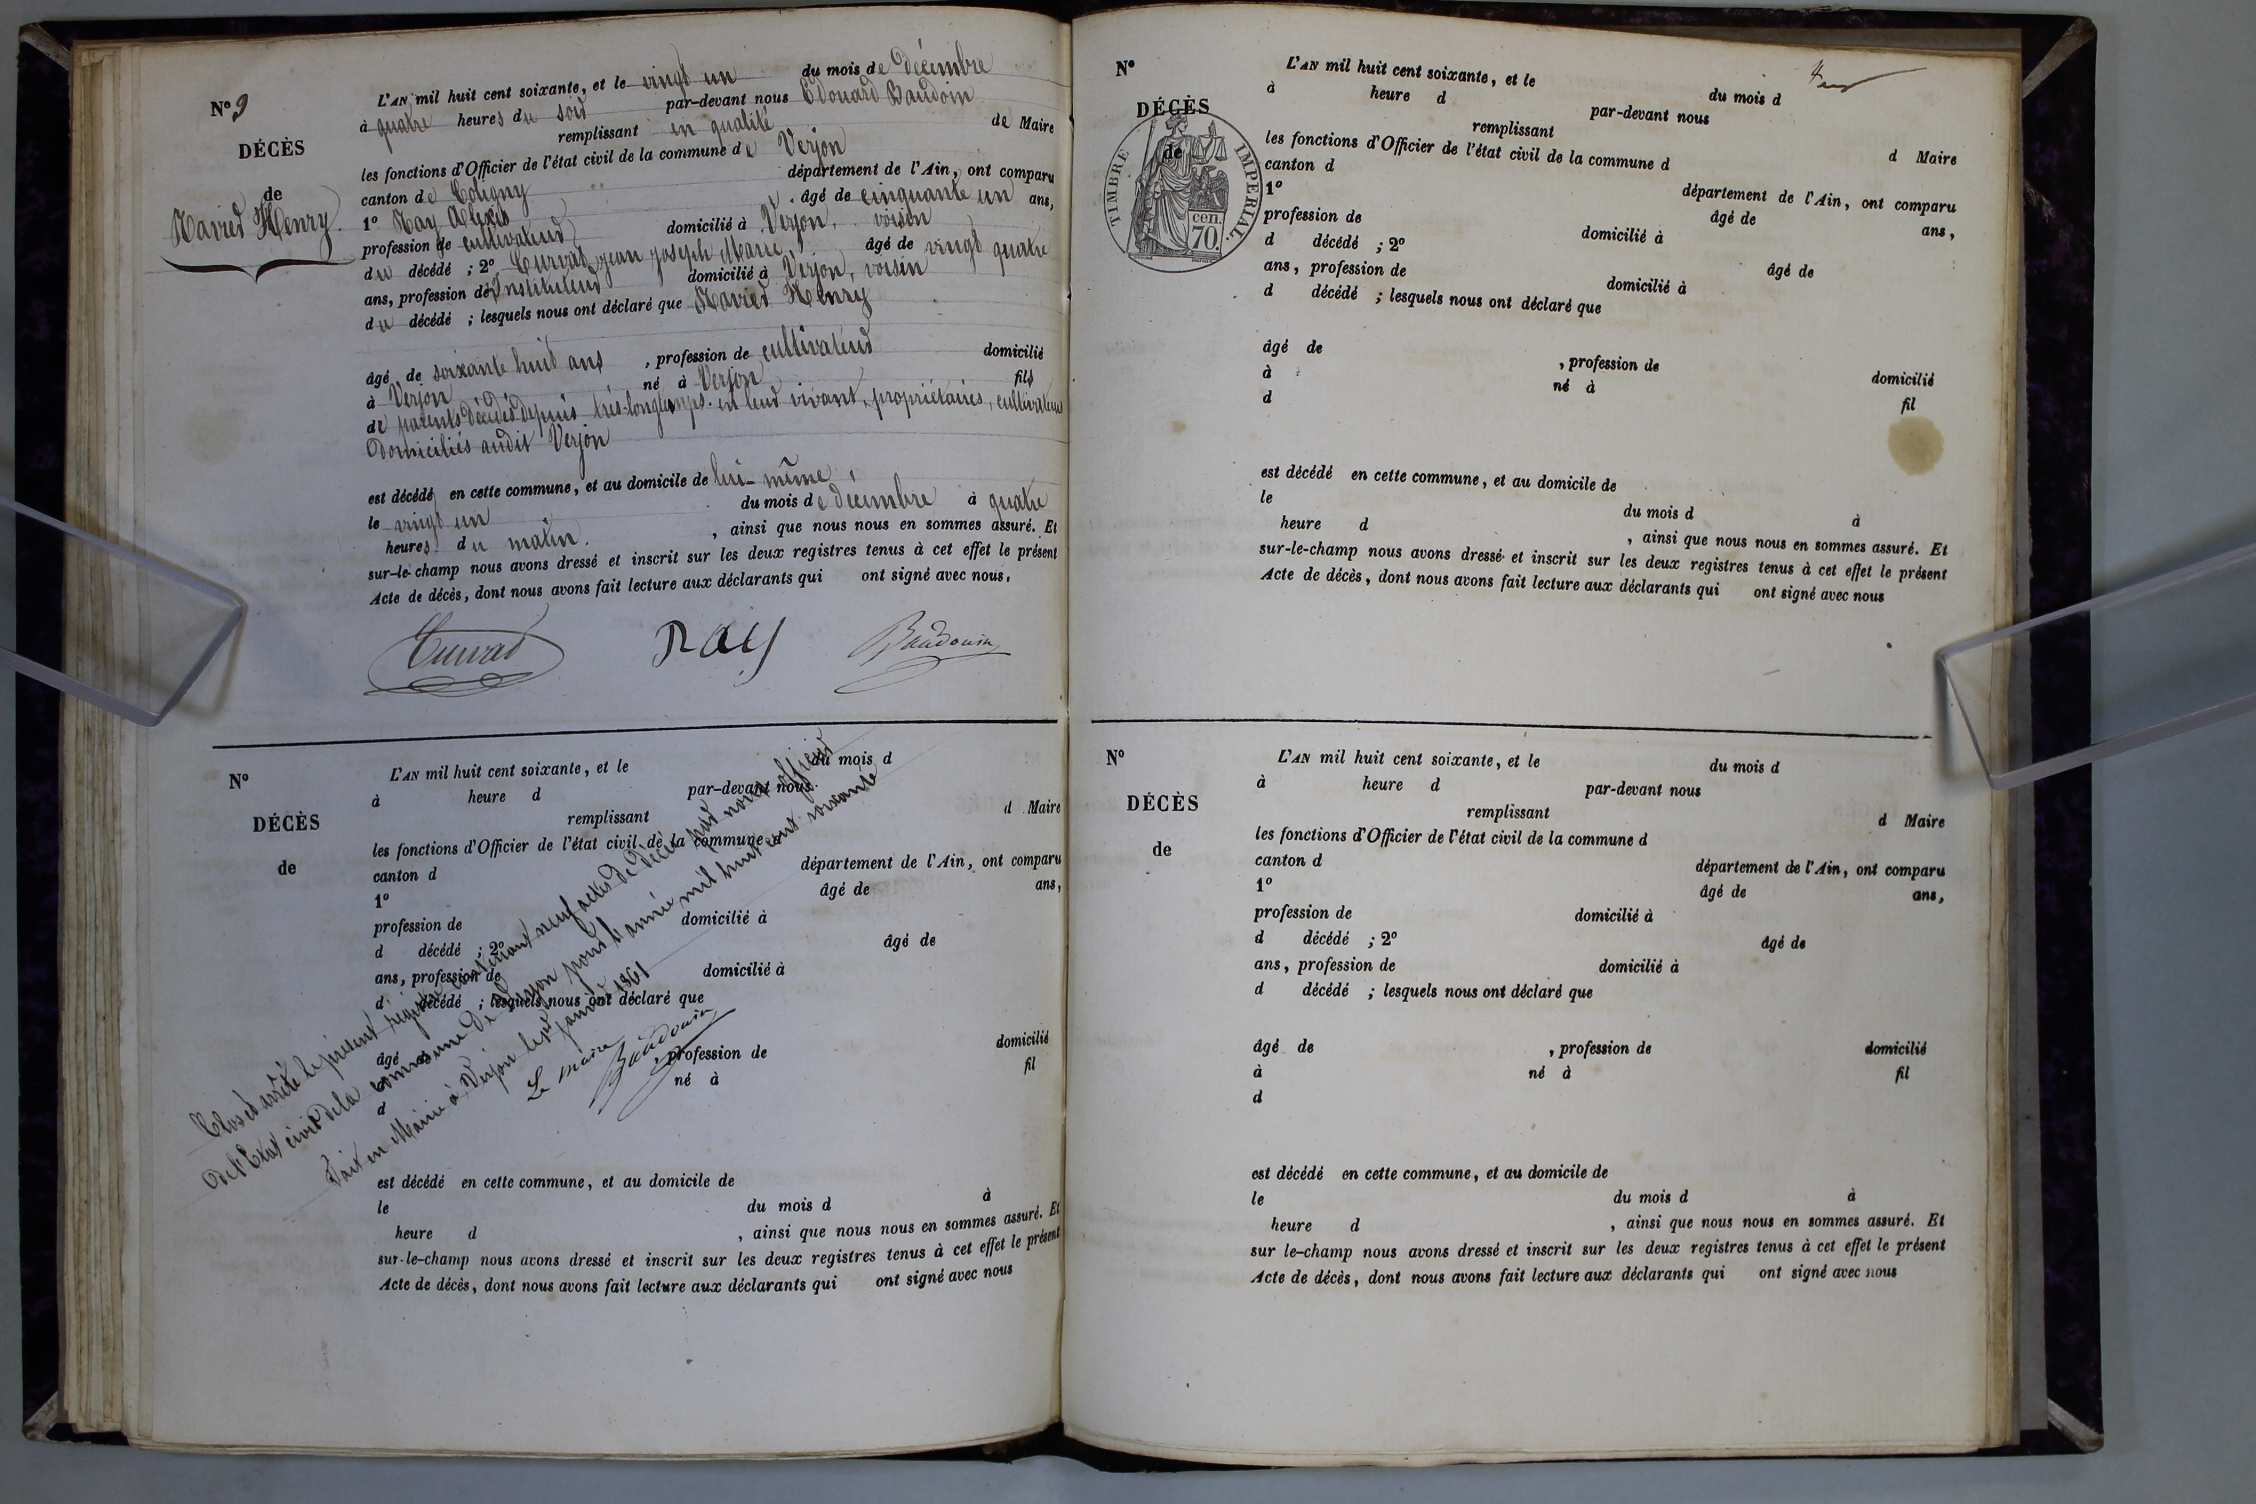 N° 9
DÉCÈS
de
Navied Henry.
L'AN mil huit cent soixante, et le vingt un du mois de Décembre
à quatre heures du soir par-devant nous Edouard Baudoin
remplissant en qualité de Maire
les fonctions d'Officier de l'état civil de la commune de Verjon
canton de Coligny département de l'Ain, ont comparu
1° Ray Alexis âgé de cinquante un ans,
profession de cultivateur domicilié à Verjon, voisin
du décédé ; 2° Curvat jean joseph Marie, âgé de vingt quatre
ans, profession de Instituteur domicilié à Verjon, voisin
du décédé ; lesquels nous ont déclaré que Navied Henry
âgé de soixante huit ans , profession de cultivateur domicilié
à Verjon né à Verjon fils
de parents décédés depuis très-longtemps. en leur vivant, propriétaires, cultivateurs
Domiciliés audit Verjon
est décédé en cette commune, et au domicile de lui-même,
le vingt un du mois de décembre à quatre
heures du matin. , ainsi que nous nous en sommes assuré. Et
sur-le-champ nous avons dressé et inscrit sur les deux registres tenus à cet effet le présent
Acte de décès, dont nous avons fait lecture aux déclarants qui ont signé avec nous,
Curvat Ray Baudouin
N°
DÉCÈS
de
L'AN mil huit cent soixante, et le du mois d
à heure d par-devant nous
remplissant d Maire
les fonctions d'Officier de l'état civil de la commune d
canton d département de l'Ain, ont comparu
1° âgé de ans,
profession de domicilié à
d décédé ; 2° âgé de
ans, profession de domicilié à
d décédé ; lesquels nous ont déclaré que
âgé de , profession de domicilié
à né à fil
d
est décédé en cette commune, et au domicile de
le du mois d à
heure d , ainsi que nous nous en sommes assuré. Et
sur-le-champ nous avons dressé et inscrit sur les deux registres tenus à cet effet le présent
Acte de décès, dont nous avons fait lecture aux déclarants qui ont signé avec nous
Clos et arrêté le présent régistre contenant neuf actes de Décès par nous officier
De l'Etat civil de la Commune De Verjon pour l'année mil huit cent soixante
Fait en Mairie à Verjon le 1er janvier 1861
Le maire
Baudouin
N°
DÉCÈS
de
TIMBRE IMPERIAL.
70 cen.
L'AN mil huit cent soixante, et le du mois d
à heure d par-devant nous
remplissant d Maire
les fonctions d'Officier de l'état civil de la commune d
canton d département de l'Ain, ont comparu
1° âgé de ans,
profession de domicilié à
d décédé ; 2° âgé de
ans, profession de domicilié à
d décédé ; lesquels nous ont déclaré que
âgé de , profession de domicilié
à né à fil
d
est décédé en cette commune, et au domicile de
le du mois d à
heure d , ainsi que nous nous en sommes assuré. Et
sur-le-champ nous avons dressé et inscrit sur les deux registres tenus à cet effet le présent
Acte de décès, dont nous avons fait lecture aux déclarants qui ont signé avec nous
N°
DÉCÈS
de
L'AN mil huit cent soixante, et le du mois d
à heure d par-devant nous
remplissant d Maire
les fonctions d'Officier de l'état civil de la commune d
canton d département de l'Ain, ont comparu
1° âgé de ans,
profession de domicilié à
d décédé ; 2° âgé de
ans, profession de domicilié à
d décédé ; lesquels nous ont déclaré que
âgé de , profession de domicilié
à né à fil
d
est décédé en cette commune, et au domicile de
le du mois d à
heure d , ainsi que nous nous en sommes assuré. Et
sur le-champ nous avons dressé et inscrit sur les deux registres tenus à cet effet le présent
Acte de décès, dont nous avons fait lecture aux déclarants qui ont signé avec nous